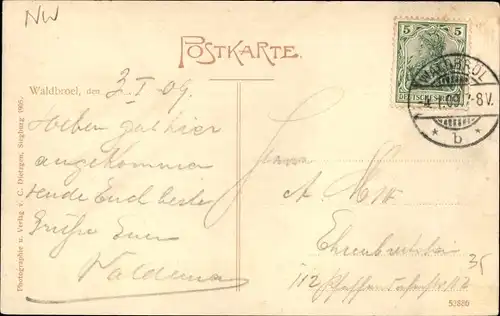 NW
POSTKARTE.
Waldbroel, den 3. I 09.
Haben gut hier
angekommen
sende Euch beste
Grüße Euer
Waldemar
Herrn
A.
Ehrenbreitstein
112
35
5
DEUTSCHES REICH
WALDBRÖL
4.1.09. 7-8V.
* b *
Photographie u. Verlag v. C. Dietzgen, Siegburg 1905.
53880